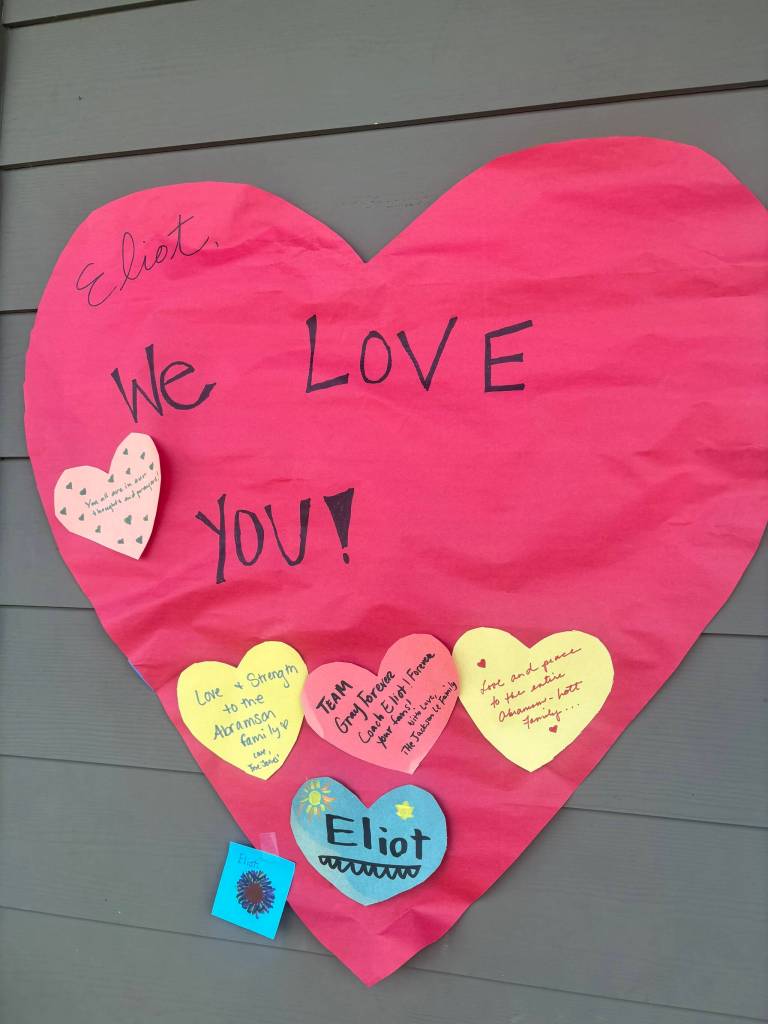 Eliot,
We LOVE
YOU!
You all are in our
thoughts and prayers!
Love & Strength
to the
Abramson
family
Love,
The Jones'
TEAM
Gray Forever
Coach Eliot! Forever
your fans!
With Love,
The Jackson Le Family
Love and peace
to the entire
Abramson-Lott
Family...
Eliot
Eliot